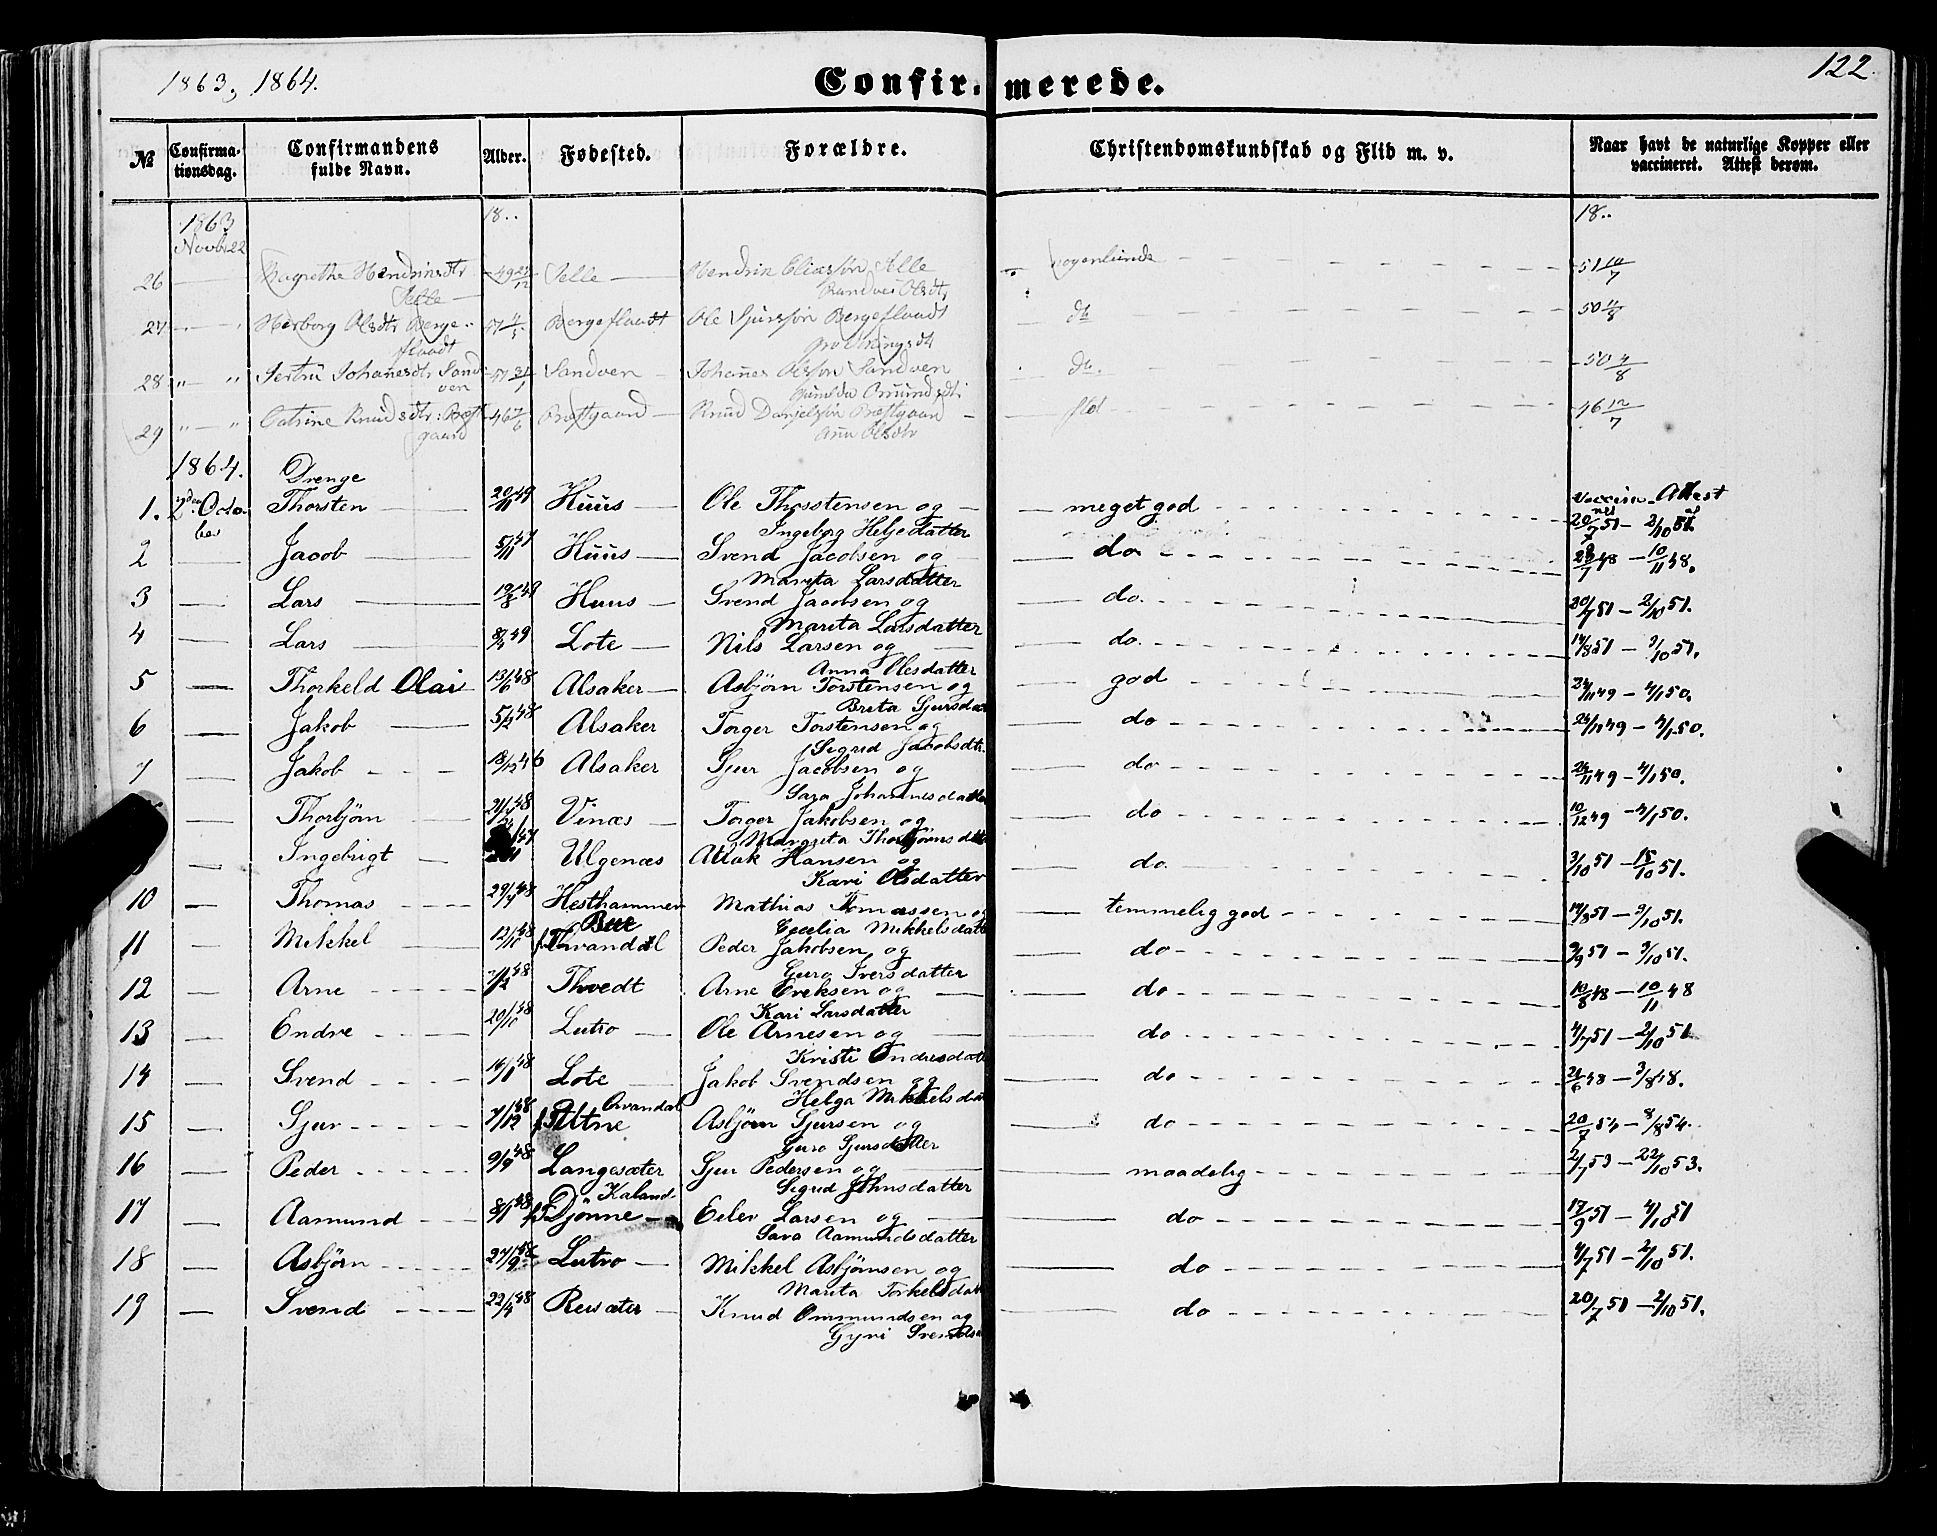 1863, 1864.
Confirmerede.
122.
№ Confirmationsdag. Confirmandens fulde Navn. Alder. Fødested. Forældre. Christendomskundskab og Flid m. v. Naar havt de naturlige Kopper eller vaccineret. Attest derom.
1863 18.. 18..
Novb 22
26 Selle Hendrik Eliasson Selle 51 10/7
Selle Olsdtr
27 Herborg Olsdtr Berge- Bergeflaadt Ole Sjursson Bergeflaadt do 50 4/8
flaadt
28 " — " Johanesdtr Sand- Sandven Johannes Olsson Sandven do. 50 4/8
ven
29 " — " Catrine Knudsdtr: 46 Knud Danjelsson 46 12/7
gaard Olsdtr
1864. Drenge
1. 2den Octo- Thorsten 20/11 49 Huus Ole Thorstensen og meget god vaccin. Attest
ber Ingeborg Heljedatter 20/7 51 — 2/10 51
2 — Jacob 5/11 47 Huus Svend Jacobsen og do 28/7 48 — 10/11 48.
Marita Larsdatter
3 — Lars 12/8 49 Huus Svend Jacobsen og do. 20/7 51 — 2/10 51.
Marita Larsdatter
4 — Lars 49 Lote Nils Larsen og do. 14/8 51 — 3/10 51.
Anna Olesdatter
5 — Thorkeld Olai 13/6 48 Alsaker Asbjørn Torstensen og god 24/11 49 — 4/1 50.
Brita Sjursda
6 — Jakob 5/2 48 Alsaker Torger Torstensen og do 24/11 49 — 4/1 50.
Sigrid Jacobsdt.
7 — Jakob 13/12 46 Alsaker Sjur Jacobsen og do 24/11 49 — 4/1 50.
Sara Johannesdatte
— Thorbjørn 48 Vinæs Torger Jakobsen og do 10/12 49 — 4/1 50.
Margreta Thorbjørnsdatte
— Ingebrigt 47 Ulgenæs Aslak Hansen og do. 3/10 51 — 15/10 51.
Kari Olsdatter
10 — Thomas 29/4 48 Hesthammer Mathias Tomassen og temmelig god 14/8 51 — 3/10 51.
Cecelia Mikkelsdatte
11 — Mikkel 12/10 48 Bue Peder Jakobsen og do 9/9 51 — 3/10 51.
f. Kvandal Guro Iversdatter
12 — Arne 48 Thvedt Arne Ereksen og do 10/8 48 — 10/11 48
Kari Larsdatter
13 — Endre 20/10 48 Lutro Ole Arnesen og do 4/7 51 — 2/10 51
Kristi Endresdatt
14 — Svend 14/1 48 Lote Jakob Svendsen og do 24/6 48 — 3/8 48.
Helga Mikkelsda
15 — Sjur 7/12 48 Qvandal Asbjørn Sjursen og do 20/7 54 — 8/8 54.
f. Utne Guro Sjursdatter
16 — Peder 9/9 48 Langesæter Sjur Pedersen og maadelig 2/7 53 — 22/10 53.
Sigrid Johnsdatter
17 — Aamund 8/1 48 Kaland. Eilev Larsen og do 17/9 51 — 4/10 51
f. Djønne Sara Aamundsdatter
18 — Asbjørn 27/9 48 Lutro Mikkel Asbjørnsen og do 4/7 51 — 2/10 51.
Marita Torkelsdat
19 — Svend 22/4 48 Reisæter Knud Ommundsen og do 20/7 51 — 2/10 51.
Gyri Svendsd